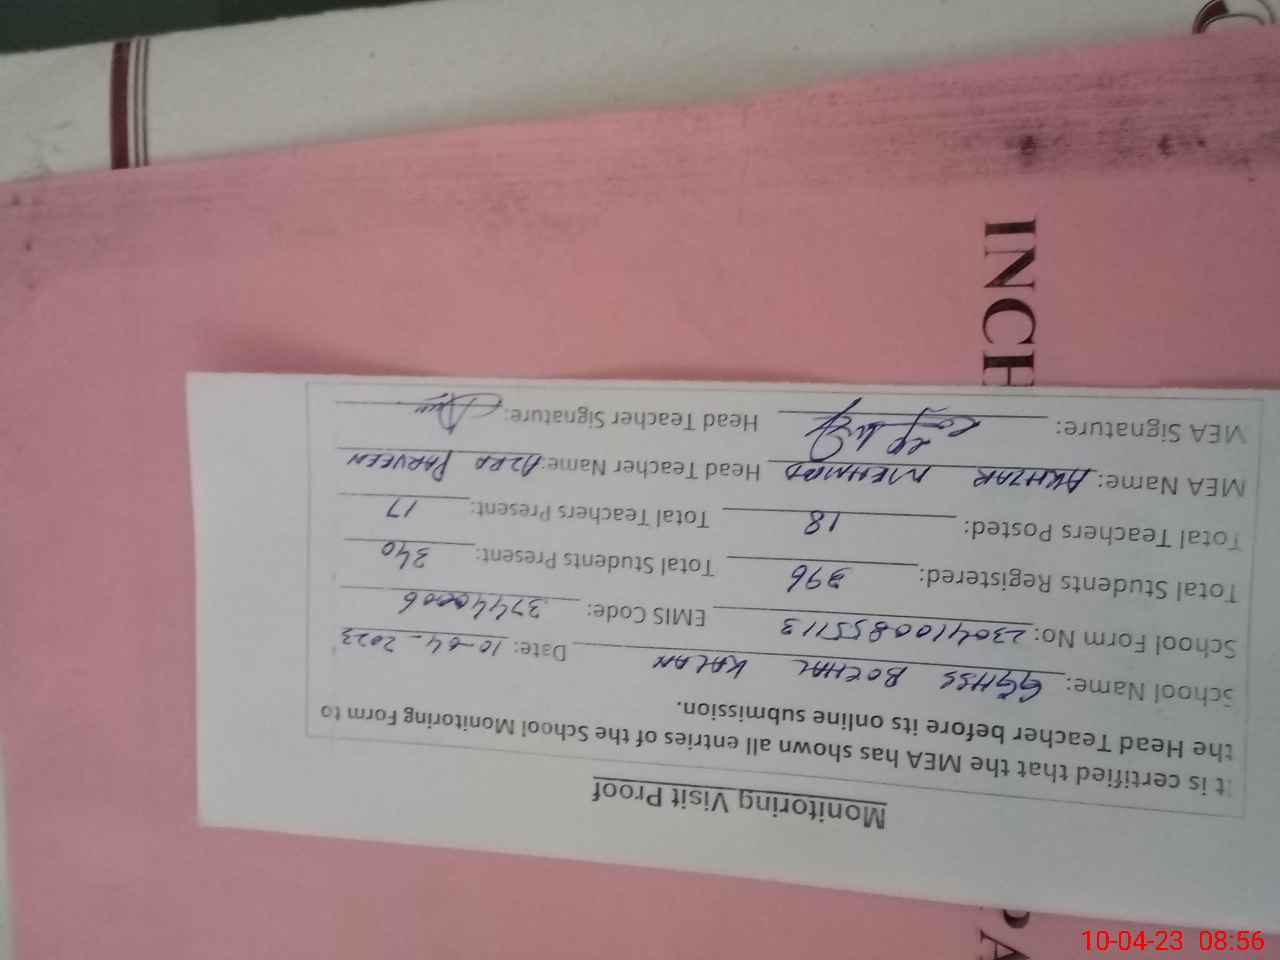 Monitoring Visit Proof
It is certified that the MEA has shown all entries of the School Monitoring Form to
the Head Teacher before its online submission.
School Name: GGHSS BOCHAL KALAN Date: 10-04-2023
School Form No: 2304100855113 EMIS Code: 37440006
Total Students Registered: 396 Total Students Present: 340
Total Teachers Posted: 18 Total Teachers Present: 17
MEA Name: AKHZAR MEHMOOD Head Teacher Name: AZRA PARVEEN
MEA Signature: Head Teacher Signature:
INCH
10-04-23 08:56